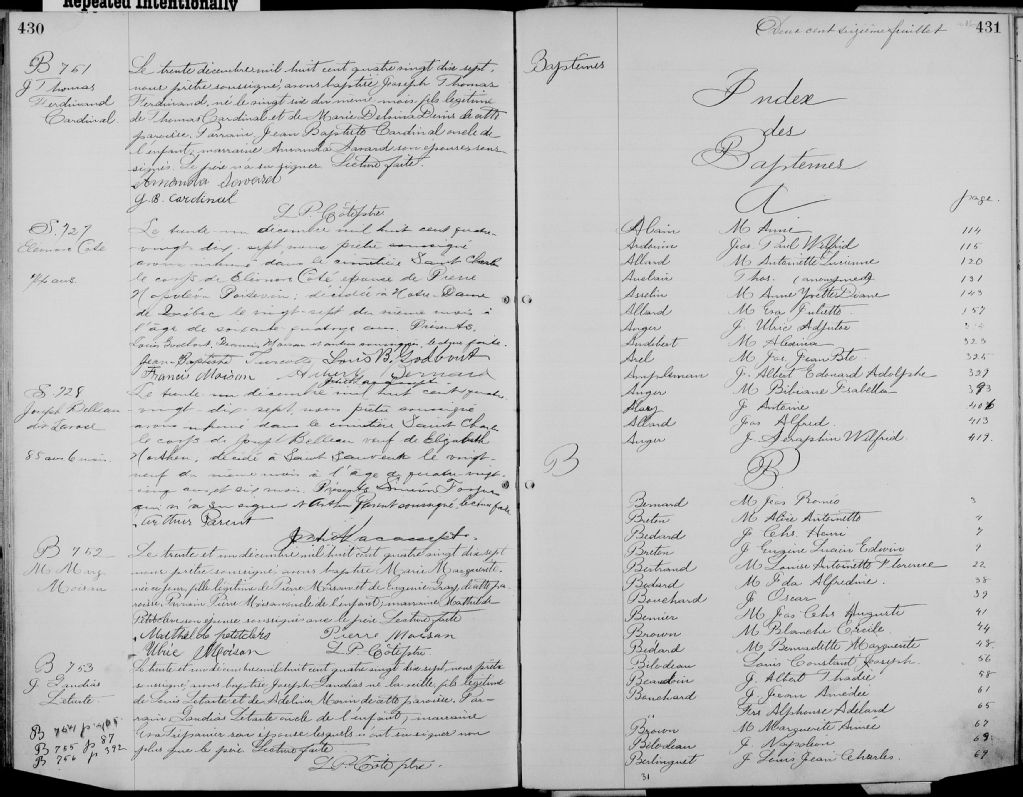 Repeated Intentionally
430
B 751
J Thomas
Ferdinand
Cardinal
Le trente decembre mil huit cent quatre vingt dix sept,
nous prêtre soussigné, avons baptisé Joseph Thomas
Ferdinand, né le vingt six du meme mois, fils légitime
de Thomas Cardinal et de Marie Delvina Denis de cette
paroisse. Parrain, Jean Baptiste Cardinal oncle de
l'enfant, marraine Amanda Savard son epouse sous-
signés. Le père n'a su signer. Lecture faite.
Amanda Savard
J. B. Cardinal
L. P. Côté ptre
S. 727
Eleonore Coté
74 ans
Le trente-un décembre mil huit cent quatre-
vingt dix-sept nous prêtre soussigné
avons inhumé dans le cimetière Saint Charles
le corps de Eléonore Coté epouse de Pierre
Napoléon Poitevin, décédée à Notre-Dame
de Québec le vingt-sept du même mois à
l'âge de soixante quatorze ans. Présents,
Louis Godbout, Francis Moisan et autres soussignés, lecture faite.
Jean-Baptiste Turcotte Louis B. Godbout
Francis Moisan Albert Bernard
S. 728
Joseph Belleau
dit Larose
85 ans 6 mois
Le trente-un décembre mil huit cent quatre-
vingt-dix-sept, nous prêtre soussigné
avons inhumé dans le cimetière Saint Charles
le corps de Joseph Belleau veuf de Elizabeth
décédé à Saint Sauveur le vingt-
neuf du même mois à l'âge de quatre-vingt-
cinq ans et six mois. Présents Siméon
qui n'a su signer et Arthur Parent soussigné, lecture faite
Arthur Parent
B 752
M Marg.
Moisan
Le trente et un décembre mil huit cent quatre vingt dix sept
nous prêtre soussigné avons baptisé Marie Marguerite,
née ce jour, fille légitime de Pierre Moisan et de Eugenie Gray, de cette pa-
roisse. Parrain Pierre Moisan oncle de l'enfant, marraine Mathilde
Petitclerc son epouse soussignés avec le père. Lecture faite
Mathilde petitclers Pierre Moisan
Ulric Moisan L. P. Côté ptre
B 753
J Gaudias
Letarte
Le trente et un décembre mil huit cent quatre vingt dix sept, nous prêtre
soussigné, avons baptisé Joseph Gaudias né la veille, fils légitime
de Louis Letarte et de Adeline Morin de cette paroisse. Par-
rain Gaudias Letarte oncle de l'enfant, marraine
Trépanier son épouse lesquels n'ont su signer non
plus que le père. Lecture faite
L. P. Côté ptre.
B 754 p 405
B 755 p 87
B 756 p 392
Deux cent seizième feuillet
431
Baptêmes
Index
des
Baptêmes
A
page.
Alain M Annie 114
Ardouin Jos Paul Wilfrid 115
Allard M Antoinette Lucienne 120
Auclair Thos. (anonyme) 131
Asselin M Anne Yvette Diane 143
Allard M Eva Juliette 157
Anger J. Ulric Adjutor
Audebert M Alexina 323
Arel M Jos Jean Bte. 325
Ampleman J. Albert Edouard Adolphe 327
Anger M Bibiane Isabella 393
Alary J Antoine 406
Allard Jos Alfred. 413
Anger J Seraphin Wilfrid 419.
B
B
Bernard M Jos Romeo 3
Breton M Alice Antoinette 4
Bedard J. Chs. Henri 7
Breton J Eugene Lucien Edwin 9
Bertrand M Louise Antoinette Florence 22
Bedard M Ida Alfredine 38
Bouchard J Oscar 39
Bernier M Jos Chs Auguste 41
Brown M Blanche Cécile. 44
Bedard M Bernadette Marguerite 48
Bilodeau Louis Constant Joseph. 56
Beaudoin J Albert Thadée 58
Bouchard J Jean Amédée 61
" Frs Alphonse Adelard 65
Brown M Marguerite Aimée 67
Bilodeau J Napoleon 69
Berlinguet J Louis Jean Charles. 69
31